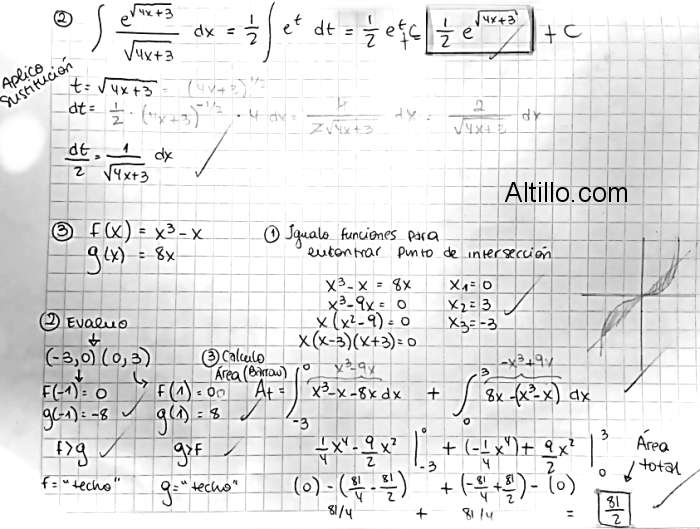 ② ∫ e^√(4x+3) / √(4x+3) dx = 1/2 ∫ e^t dt = 1/2 e^t + C = 1/2 e^√(4x+3) + C
Aplico sustitución
t = √(4x+3) = (4x+3)^1/2
dt = 1/2 · (4x+3)^-1/2 · 4 dx = 4 / 2√(4x+3) dx = 2 / √(4x+3) dx
dt/2 = 1/√(4x+3) dx
Altillo.com
③ f(x) = x³ - x
g(x) = 8x
① Igualo funciones para
encontrar punto de intersección
x³ - x = 8x x₁ = 0
x³ - 9x = 0 x₂ = 3
x(x² - 9) = 0 x₃ = -3
x(x-3)(x+3) = 0
② Evaluo
(-3,0) (0,3)
f(-1) = 0 f(1) = 0
g(-1) = -8 g(1) = 8
f>g g>f
f = "techo" g = "techo"
③ Calculo
Área (Barrow)
x³-9x -x³+9x
At = ∫₋₃⁰ x³-x-8x dx + ∫₀³ 8x-(x³-x) dx
1/4 x⁴ - 9/2 x² |₋₃⁰ + (-1/4 x⁴) + 9/2 x² |₀³
(0) - (81/4 - 81/2) + (-81/4 + 81/2) - (0)
81/4 + 81/4 = 81/2
Área total